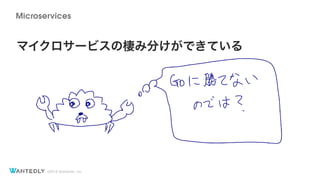 Microservices
マイクロサービスの棲み分けができている
Goに勝てない
のでは?
WANTEDLY